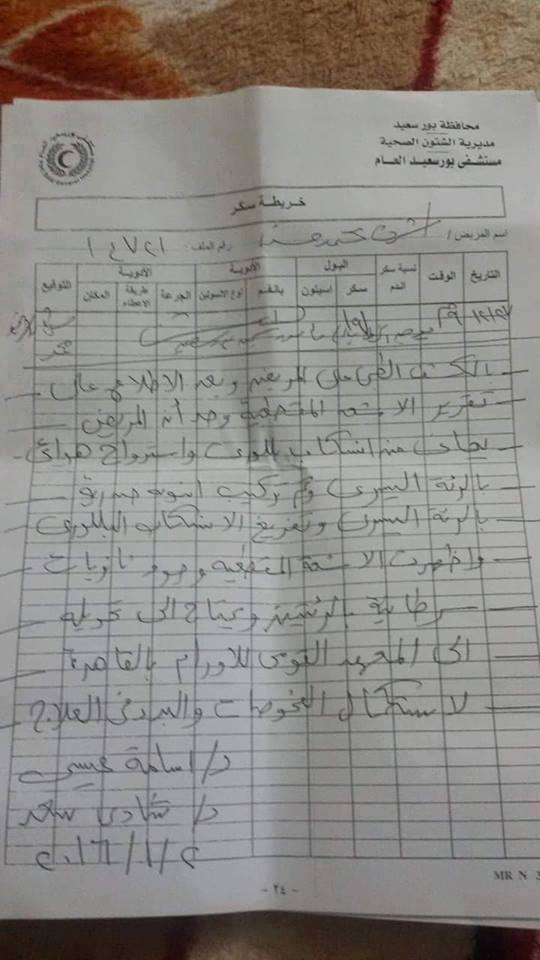 محافظة بورسعيد
مديرية الشئون الصحية
مستشفى بورسعيد العام
خريطة سكر
اسم المريض /
رقم الملف : ١٤٧٢١
التاريخ
الوقت
نسبة سكر الدم
البول
سكر
اسيتون
الأدوية
بالفم
نوع الانسولين
الجرعة
الأدوية
طريقة الاعطاء
المكان
التوقيع
بالكشف الطبى على المريض وبعد الاطلاع على
تقرير الاشعة المقطعية وجد أن المريض
يعانى من انسكاب بللورى واسترواح هوائى
بالرئة اليسرى وتم تركيب انبوبة صدرية
بالرئة اليسرى وتفريغ الانسكاب البللورى
واظهرت الاشعة المقطعية وجود ثانويات
سرطانية بالرئتين ويحتاج الى تحويله
الى المعهد القومى للاورام بالقاهرة
لاستكمال الفحوصات والبدء فى العلاج
د/ اسامة عيسى
د/ شادى سعد
٢٠١٦/١/٢
- ٢٤ -
MR N 3